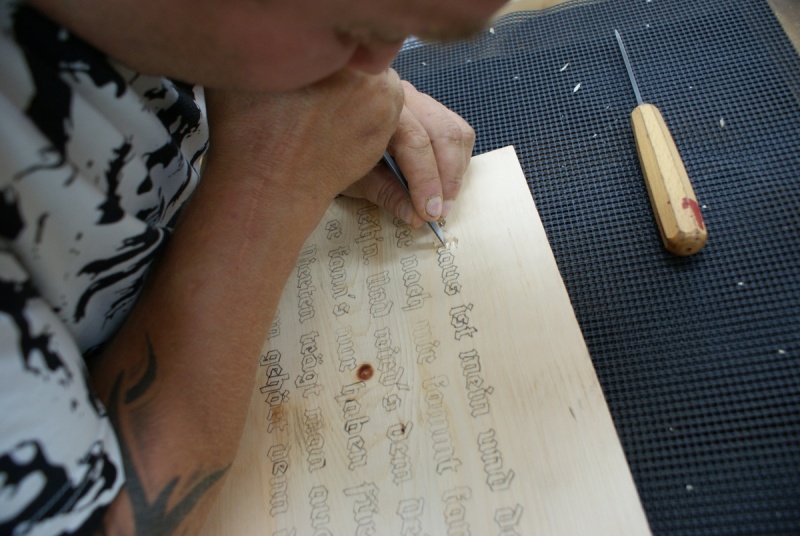 aus ist mein und d
noch mir kommt kan
Und wird's dem
er kann's nur haben
Vierten trägt man
gehört denn